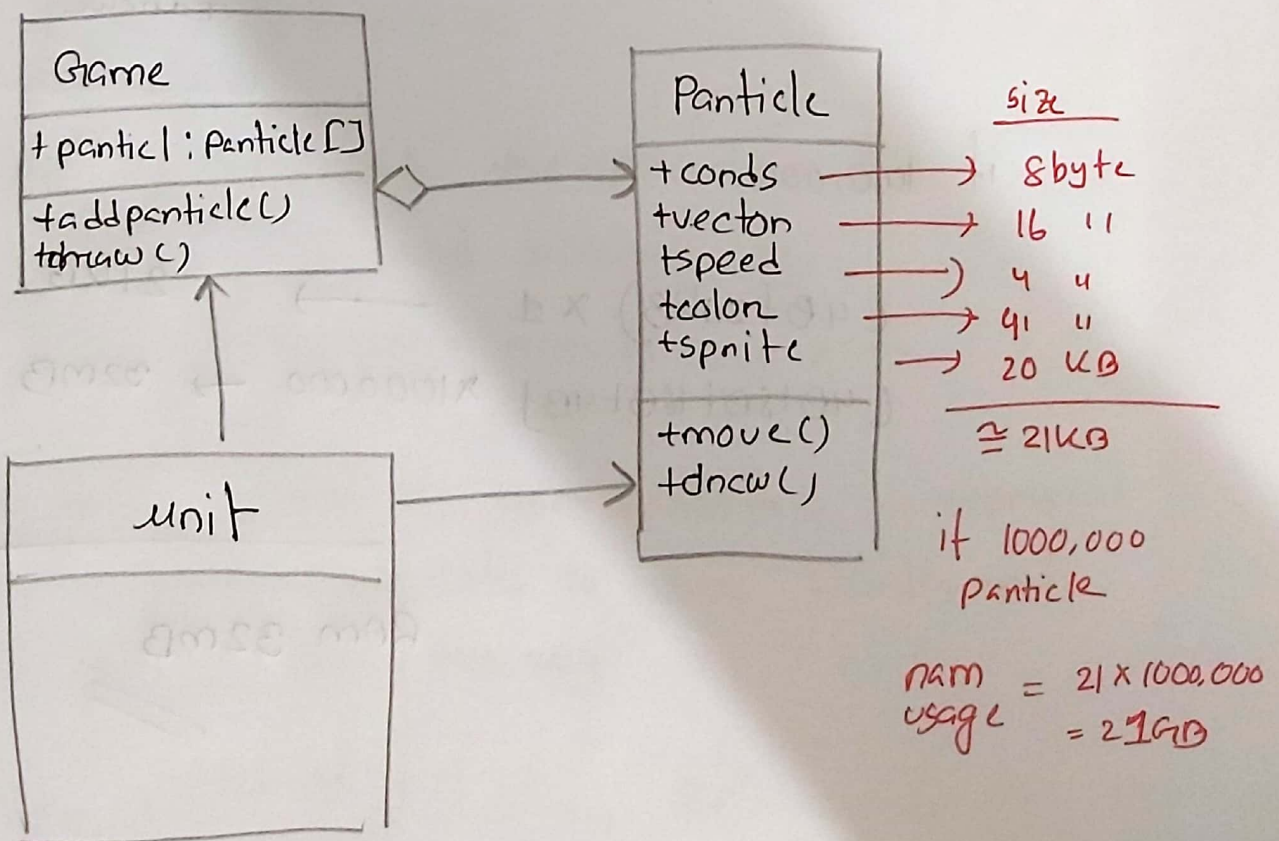 Game
+ particl : Particle []
+addparticle()
+draw()
Particle
+ cords
+vector
+speed
+color
+sprite
+move()
+draw()
size
8byte
16 "
4 "
41 "
20 KB
≅ 21KB
unit
if 1000,000
Particle
ram usage = 21 x 1000,000
= 21GB
32MB
Ram 32MB